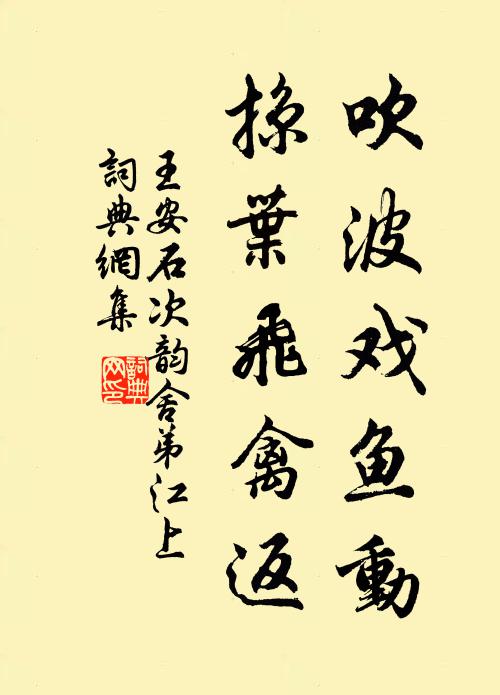 吹波戏鱼動
掠葉飛禽返
王安石次韵舍弟江上
詞典網集
詞典網印